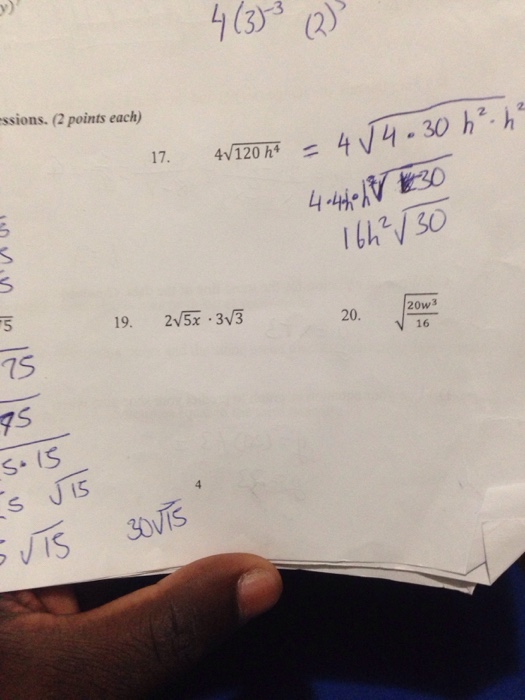 4(3)⁻³ (2)³
essions. (2 points each)
17. 4√120 h⁴ = 4√4·30 h²·h²
4·4h·h√30
16h²√30
5
5
5
√5
19. 2√5x · 3√3
20. √20w³/16
75
75
5·15
5 √15
√15
30√15
4